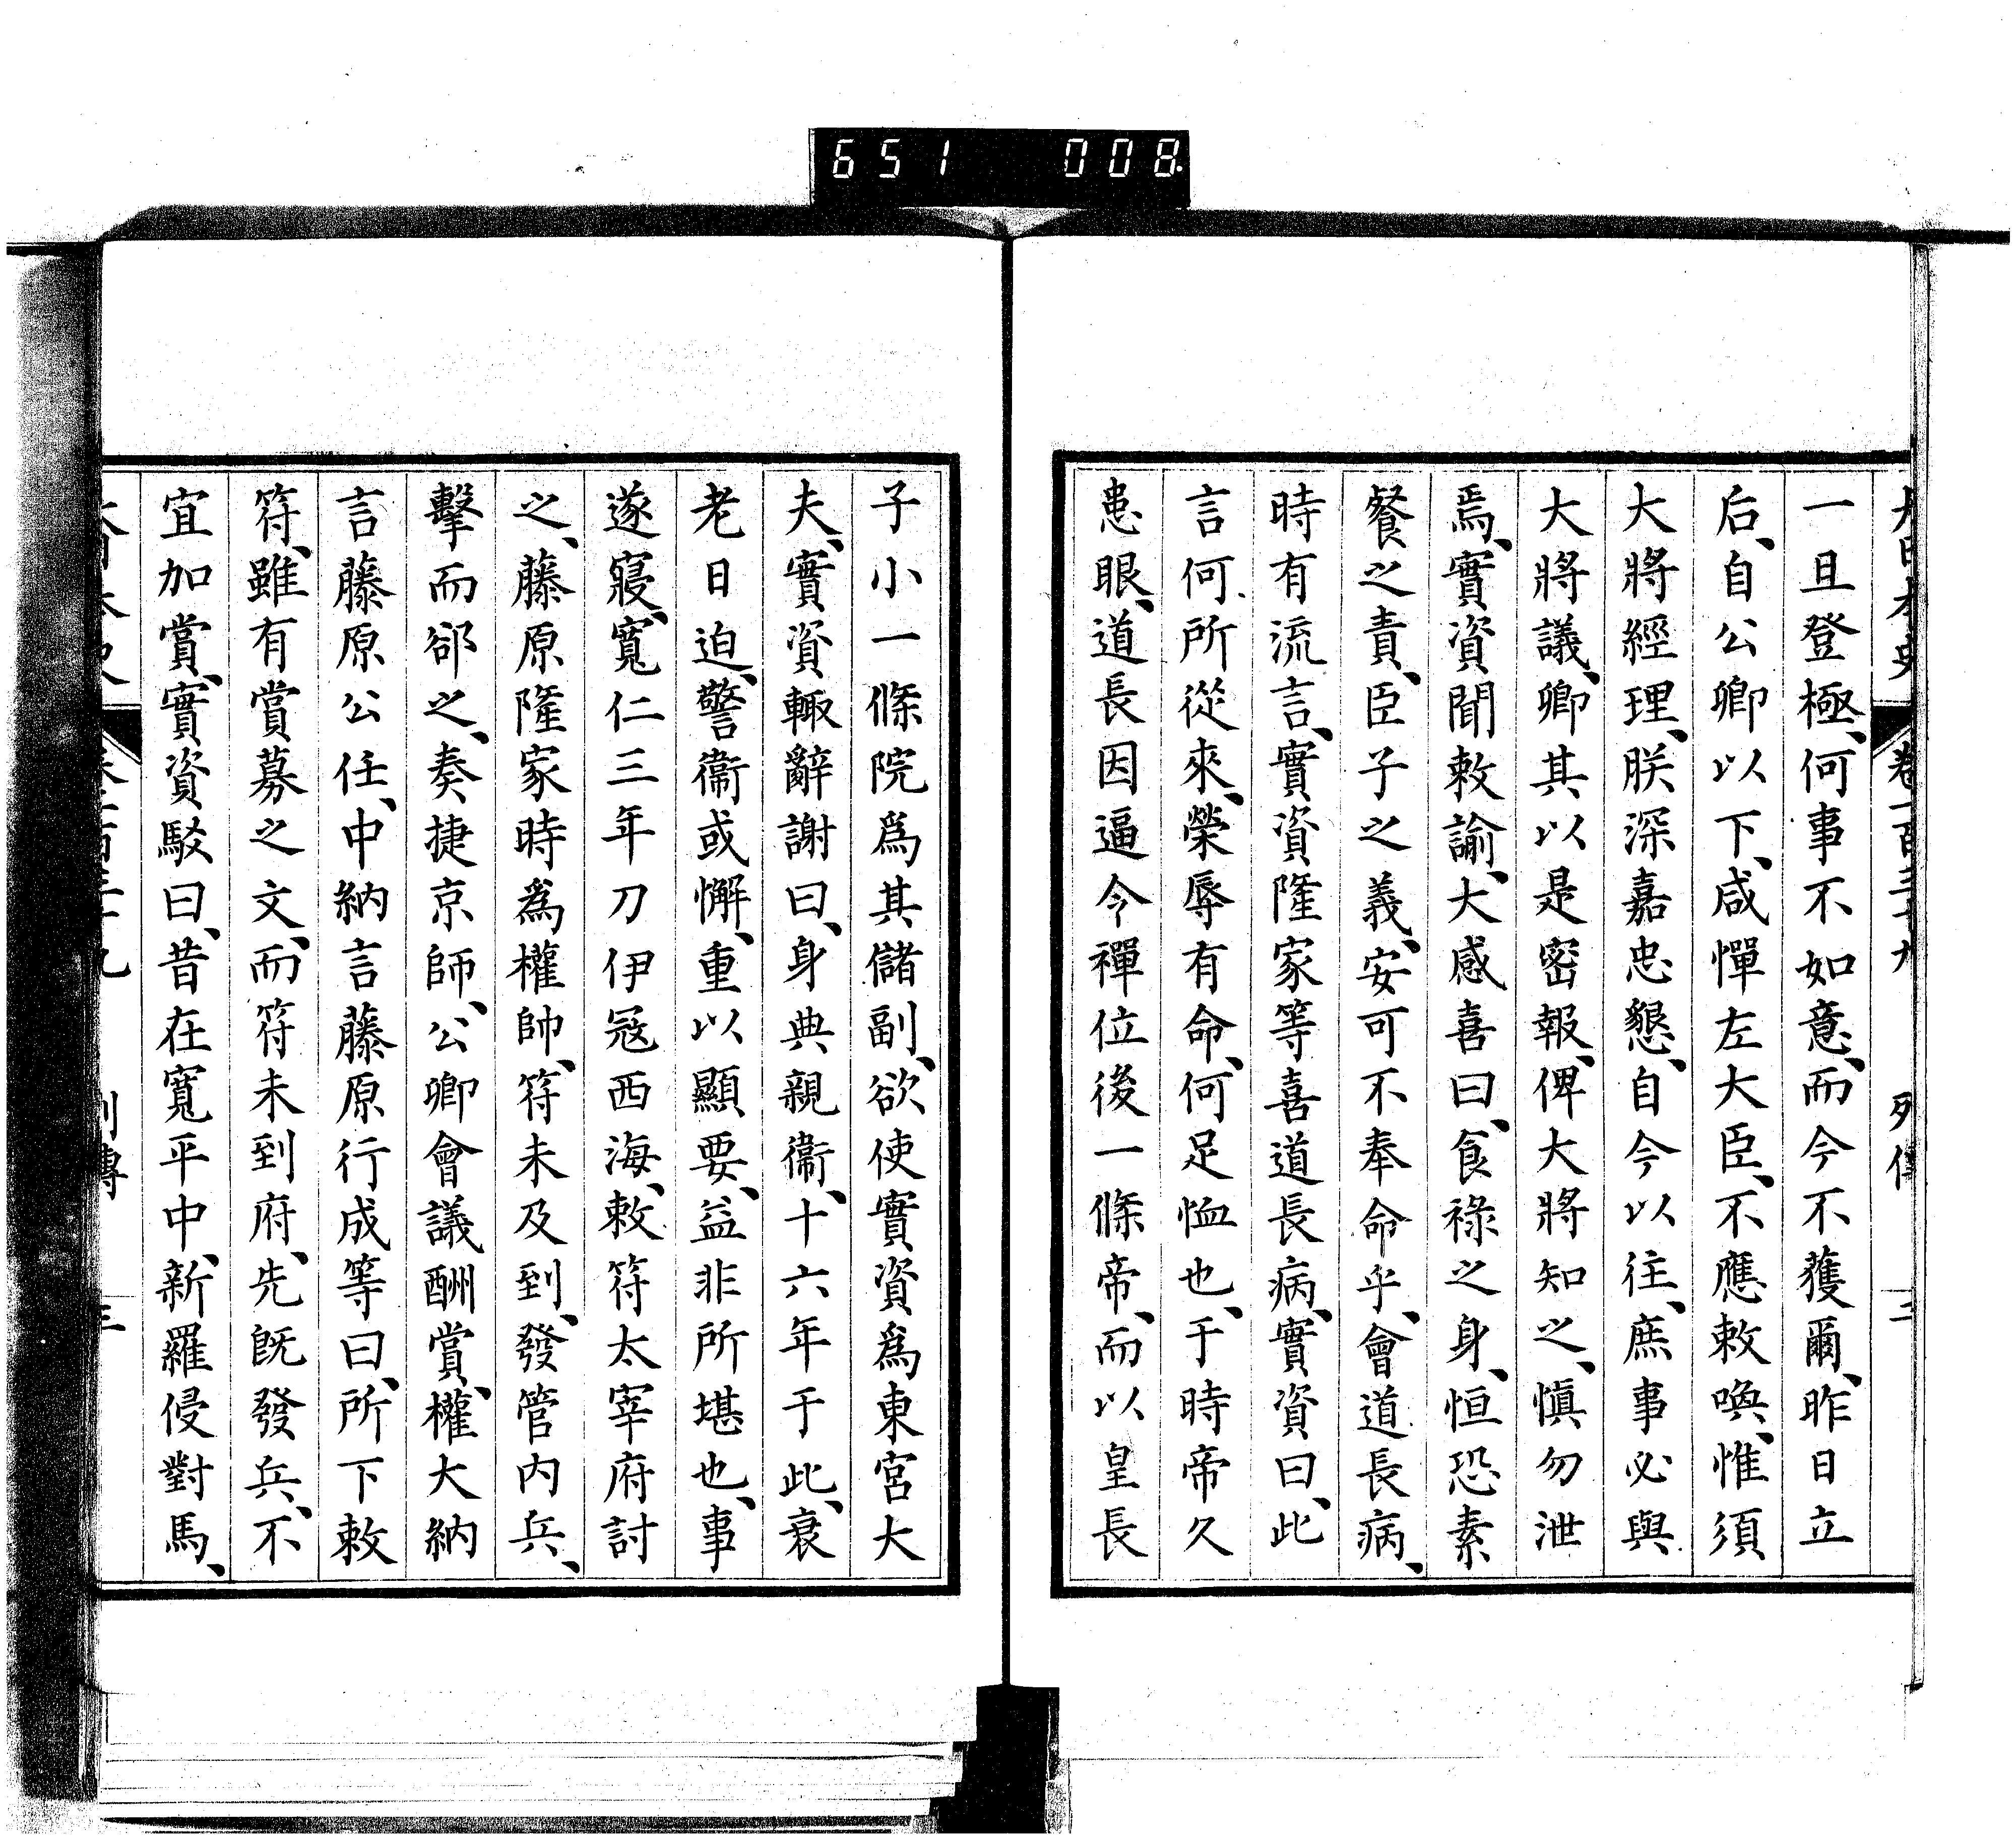 651 008
大日本史 卷一百三十九 列傳 三
一旦登極、何事不如意、而今不獲爾、昨日立
后、自公卿以下、咸憚左大臣、不應敕喚、惟須
大將經理、朕深嘉忠懇、自今以往、庶事必與
大將議、卿其以是密報、俾大將知之、慎勿泄
焉、實資聞敕諭、大感喜曰、食祿之身、恒恐素
餐之責、臣子之義、安可不奉命乎、會道長病、
時有流言、實資隆家等喜道長病、實資曰、此
言何所從來、榮辱有命、何足恤也、于時帝久
患眼、道長因逼今禪位後一條帝、而以皇長
子小一條院爲其儲副、欲使實資爲東宮大
夫、實資輙辭謝曰、身典親衞、十六年于此、衰
老日迫、警衞或懈、重以顯要、益非所堪也、事
遂寢、寬仁三年刀伊寇西海、敕符太宰府討
之、藤原隆家時爲權帥、符未及到、發管内兵、
擊而郤之、奏捷京師、公卿會議酬賞、權大納
言藤原公任、中納言藤原行成等曰、所下敕
符、雖有賞募之文、而符未到府、先既發兵、不
宜加賞、實資駁曰、昔在寬平中、新羅侵對馬、
大日本史 卷一百三十九 列傳 三